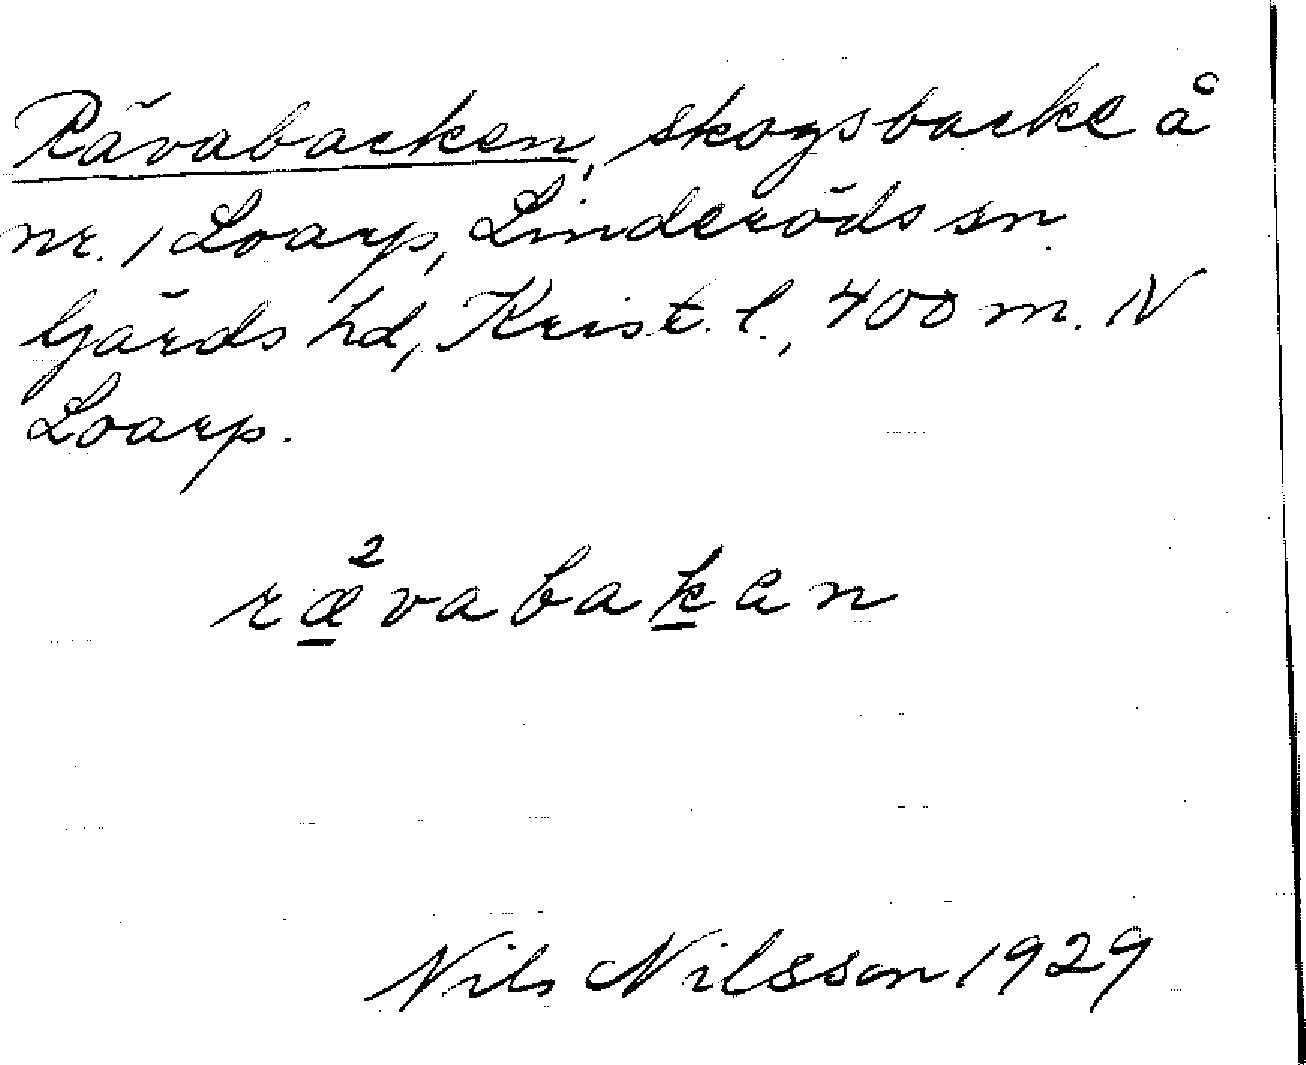 Rävabacken, skogsbacke å
nr. 1 Loarp, Linderöds sn
Gärds hd, Krist. l., 400 m. N
Loarp.
ræ̱²vabaḵan
Nils Nilsson 1929